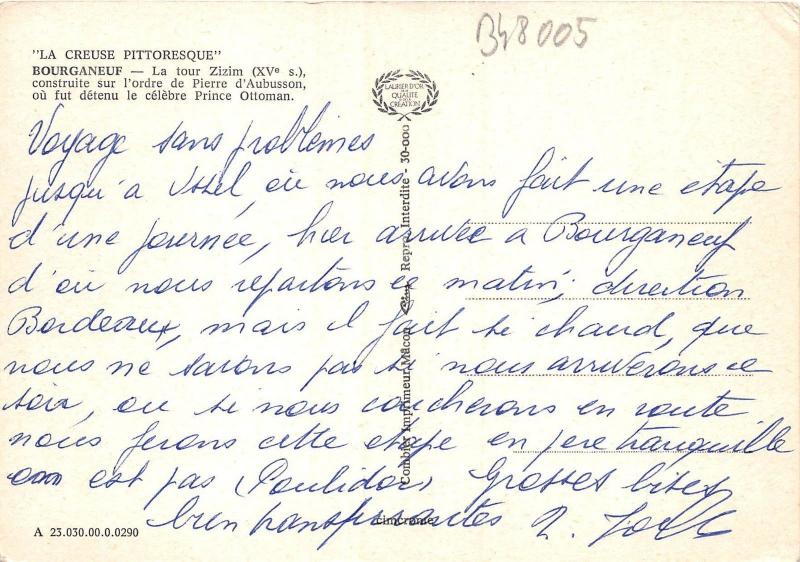 B48005
"LA CREUSE PITTORESQUE"
BOURGANEUF — La tour Zizim (XVe s.),
construite sur l'ordre de Pierre d'Aubusson,
où fut détenu le célèbre Prince Ottoman.
LAURIER D'OR
DE
QUALITÉ
CRÉATION
Voyage sans problèmes
jusqu'à Ussel, où nous avons fait une étape
d'une journée, hier arrivée à Bourganeuf
d'où nous repartons ce matin, direction
Bordeaux, mais il fait si chaud, que
nous ne savons pas si nous arriverons ce
soir, ou si nous coucherons en route
nous ferons cette étape en père tranquille
on est pas (Poulidor) Grosses bises
bien transpirantes
Combier Imprimeur Mâcon Repro. Interdite - 30-000
cimcrome
A 23.030.00.0.0290